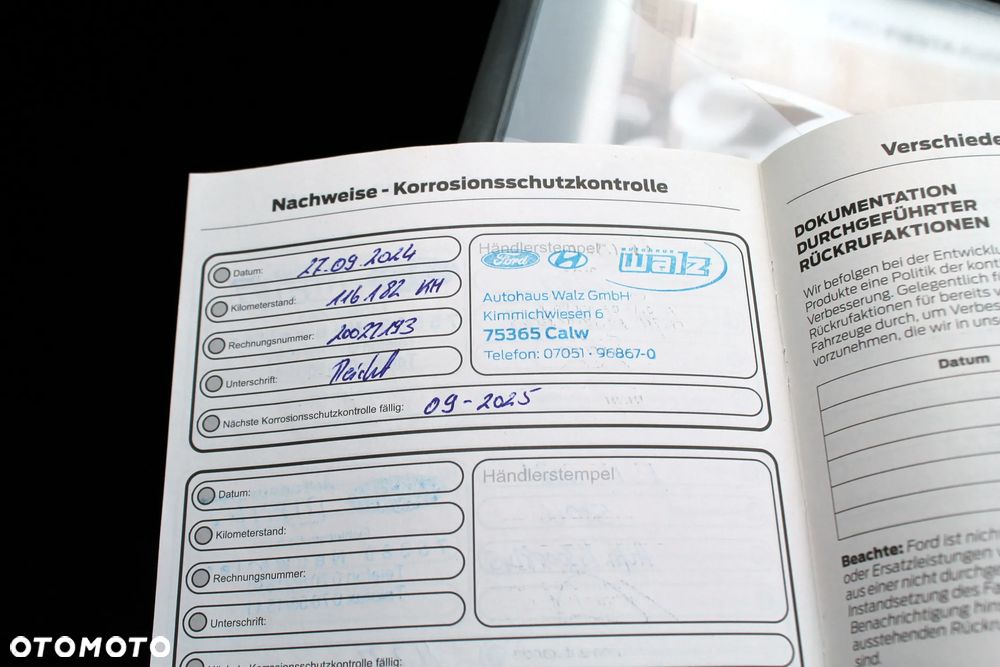 Nachweise - Korrosionsschutzkontrolle
Datum: 27.09.2024
Kilometerstand: 116.182 KM
Rechnungsnummer: 20027193
Unterschrift:
Nächste Korrosionsschutzkontrolle fällig: 09-2025
Händlerstempel
Ford
autohaus
walz
Autohaus Walz GmbH
Kimmichwiesen 6
75365 Calw
Telefon: 07051 · 96867-0
Datum:
Kilometerstand:
Rechnungsnummer:
Unterschrift:
Korrosionsschutzkontrolle fällig:
Händlerstempel
Verschiede
DOKUMENTATION
DURCHGEFÜHRTER
RÜCKRUFAKTIONEN
Wir befolgen bei der Entwickl
Produkte eine Politik der kont
Verbesserung. Gelegentlich f
Rückrufaktionen für bereits v
Fahrzeuge durch, um Verbes
vorzunehmen, die wir in uns
Datum
Beachte: Ford ist nich
oder Ersatzleistungen
aus einer nicht durchge
Instandsetzung des Fa
Benachrichtigung hin
ausstehenden Rückr
sind.
OTOMOTO